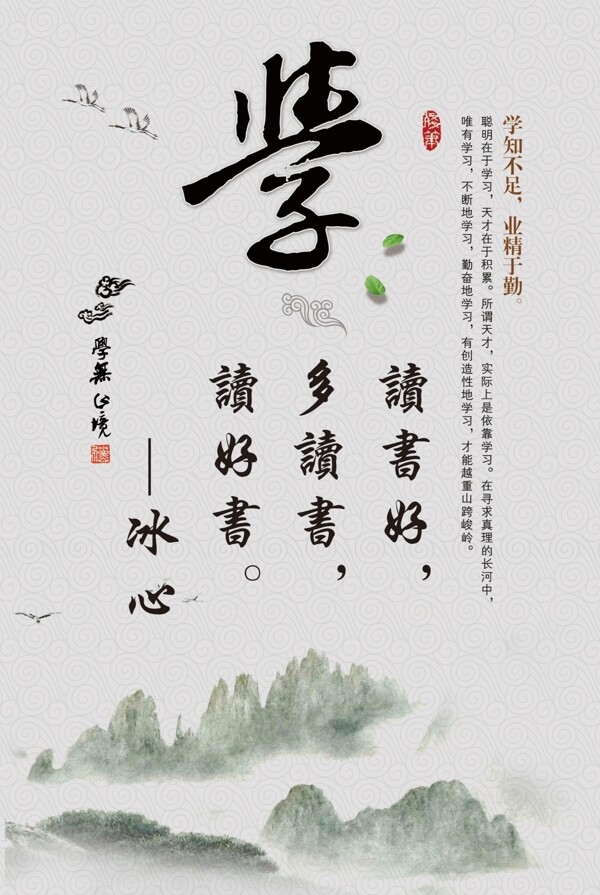 學
学知不足，业精于勤。
聪明在于学习，天才在于积累。所谓天才，实际上是依靠学习。在寻求真理的长河中，
唯有学习，不断地学习，勤奋地学习，有创造性地学习，才能越重山跨峻岭。
讀書好，
多讀書，
讀好書。
——冰心
學無止境